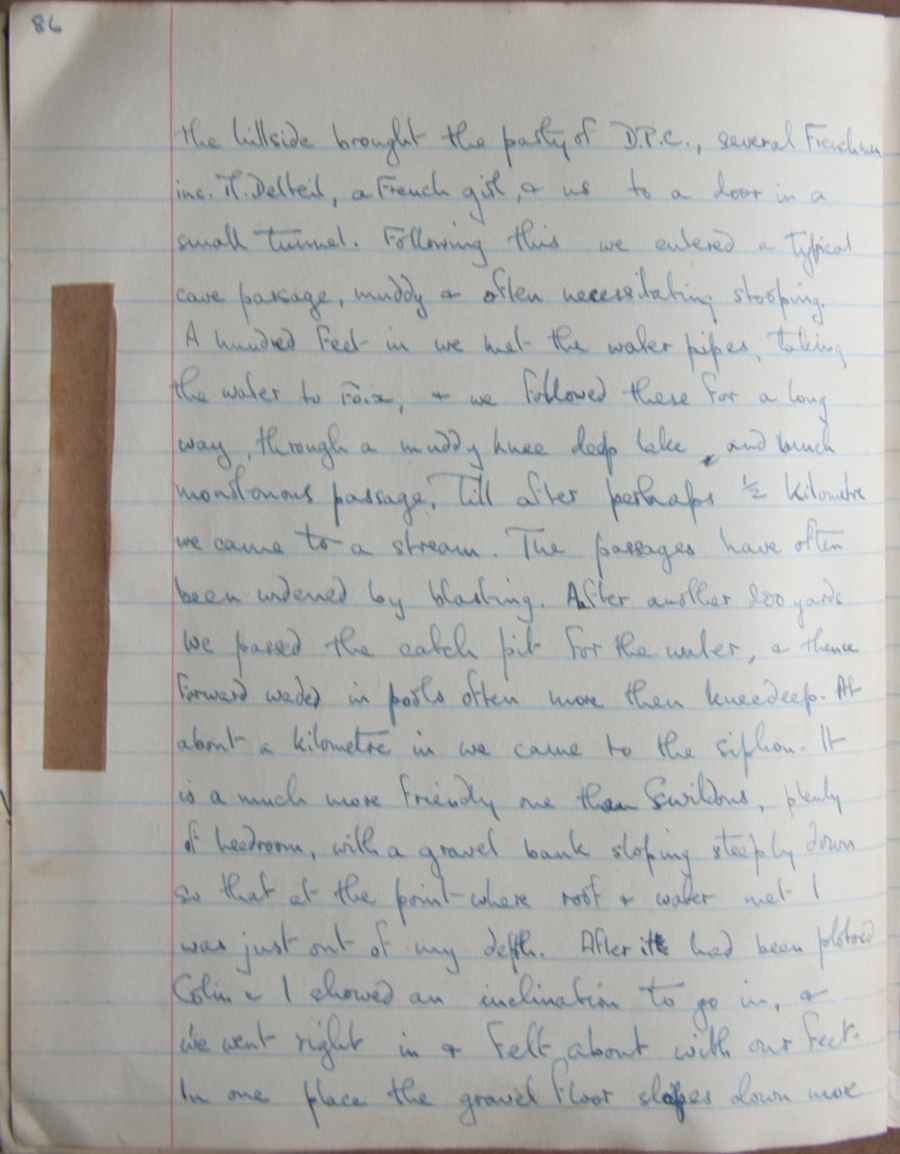 86
the hillside brought the party of D.P.C., several Frenchmen
inc. M. Delteil, a French girl, & us to a door in a
small tunnel. Following this we entered a typical
cave passage, muddy & often necessitating stooping.
A hundred feet in we met the water pipes, taking
the water to Foix, & we followed these for a long
way, through a muddy knee deep lake, and much
monotonous passage, Till after perhaps ½ kilometre
we came to a stream. The passages have often
been widened by blasting. After another 200 yards
we passed the catch pit for the water, & thence
forward waded in pools often more than kneedeep. At
about a kilometre in we came to the siphon. It
is a much more friendly one than Swildons, plenty
of headroom, with a gravel bank sloping steeply down
so that at the point where roof & water met I
was just out of my depth. After it had been photoed
Colin & I showed an inclination to go in, &
we went right in & felt about with our feet.
In one place the gravel floor slopes down more